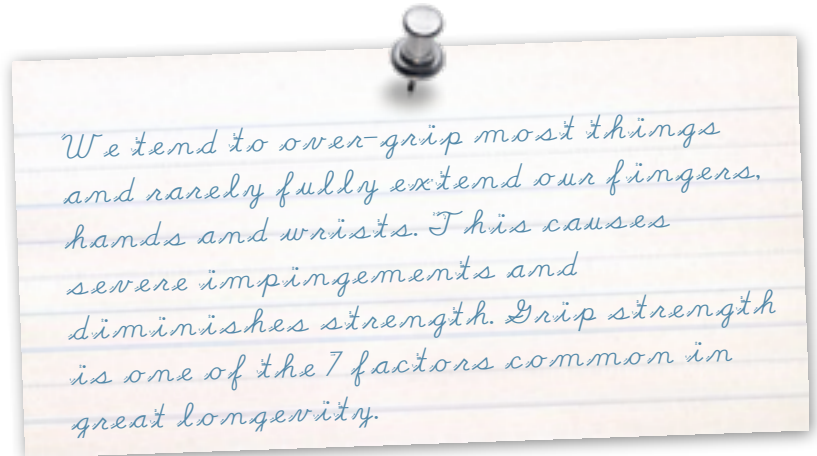 We tend to over-grip most things
and rarely fully extend our fingers,
hands and wrists. This causes
severe impingements and
diminishes strength. Grip strength
is one of the 7 factors common in
great longevity.